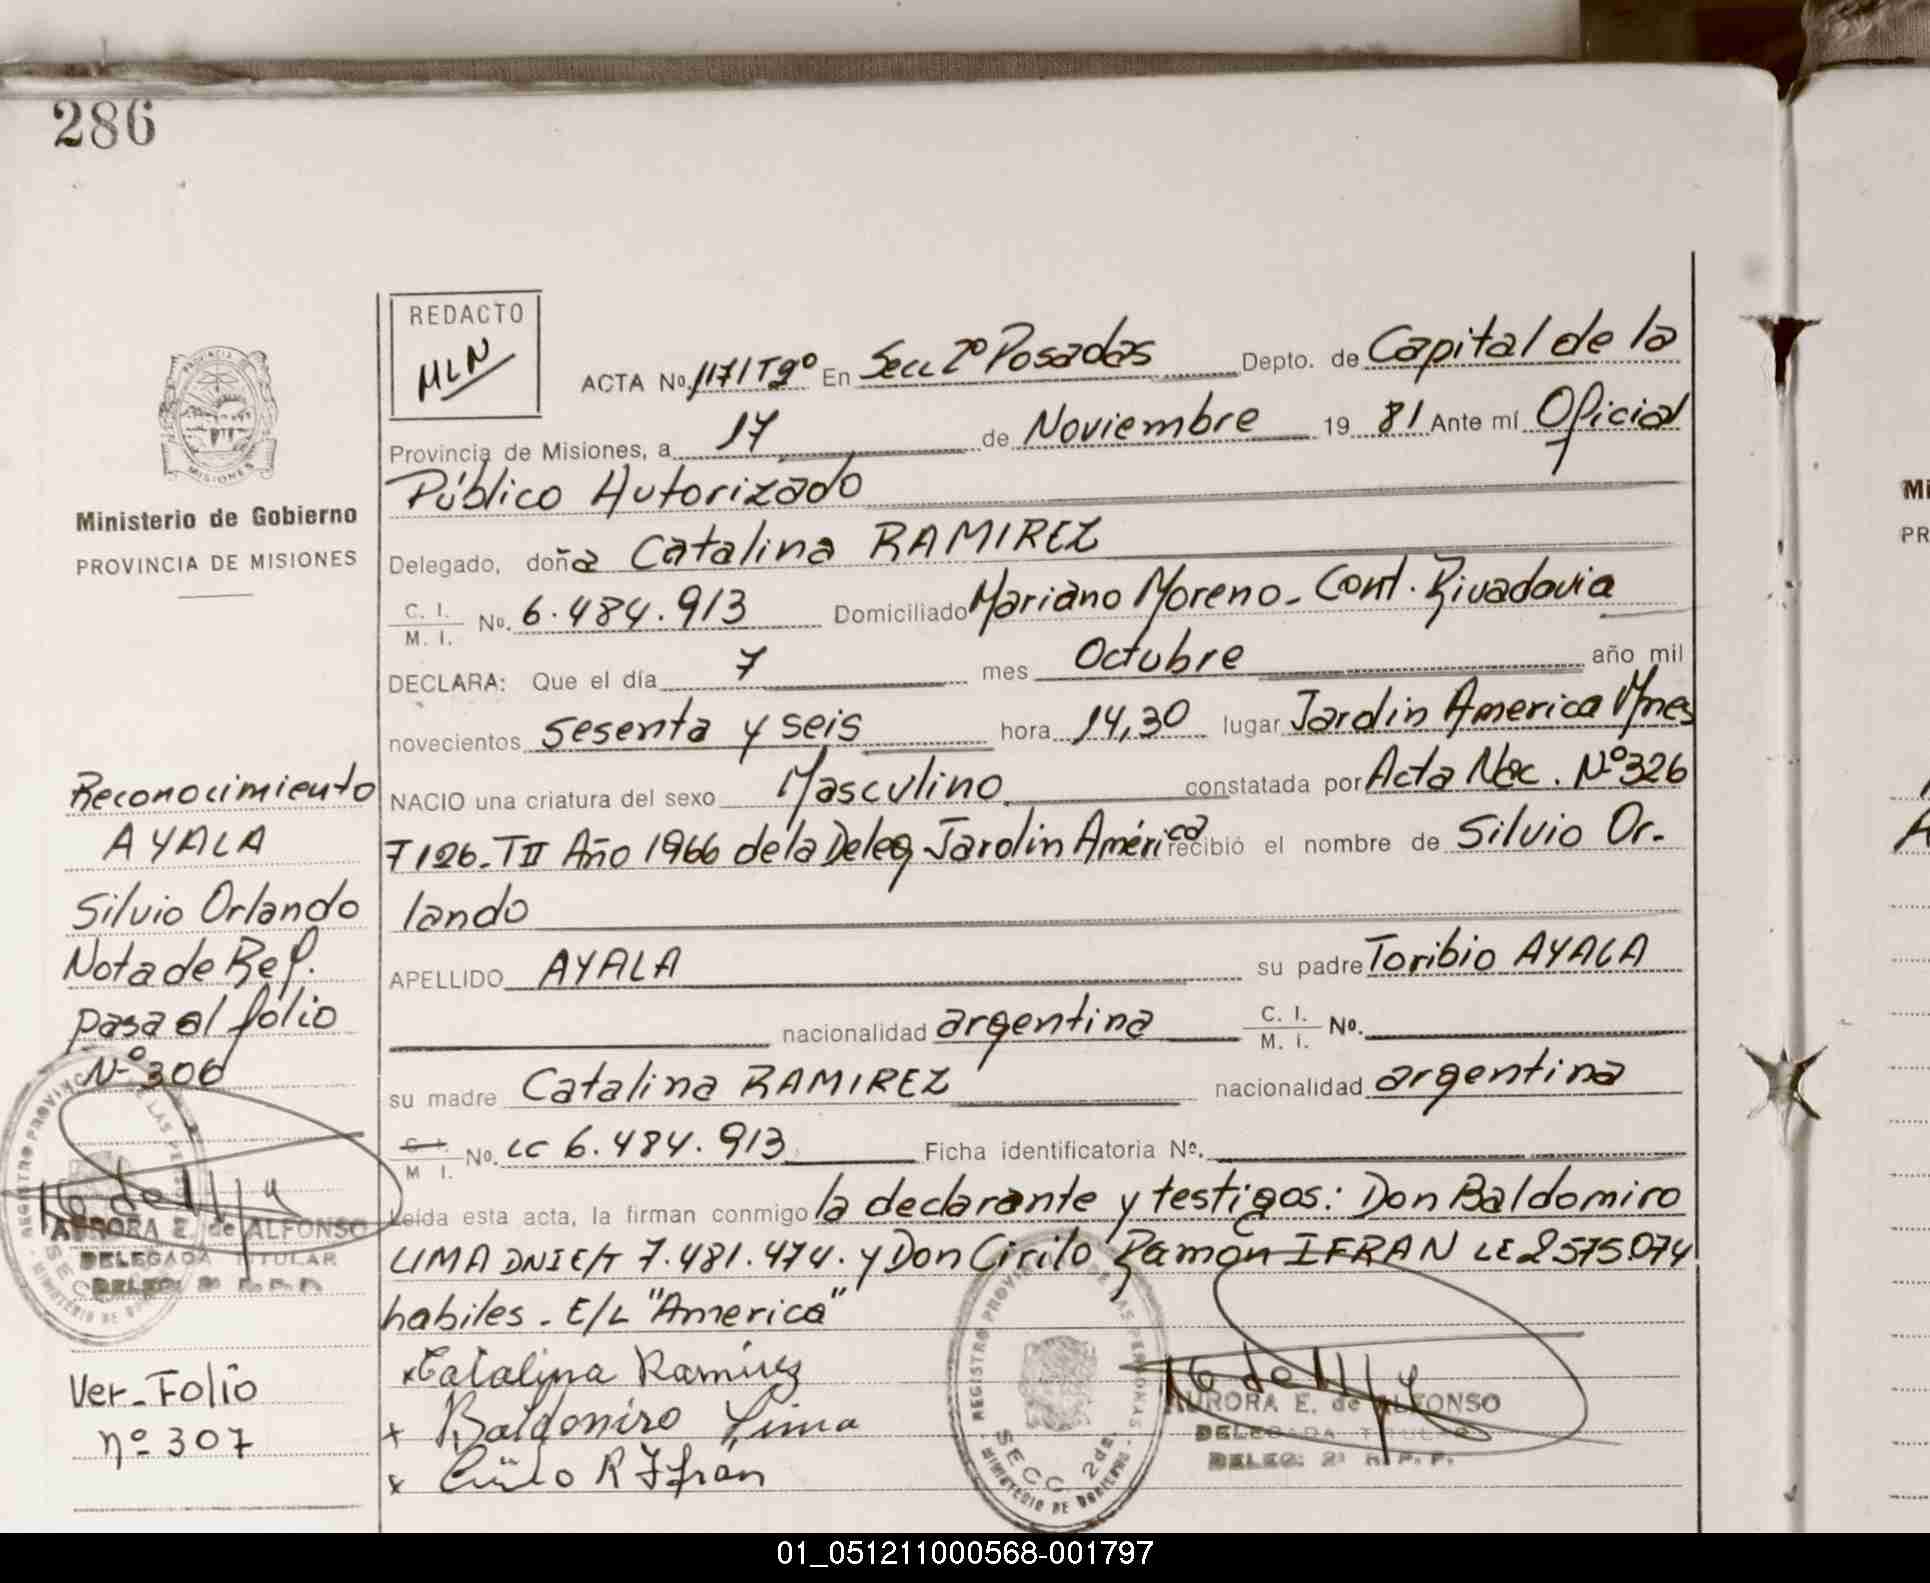 286
REDACTO
MLN
ACTA No. 1171 T9º En Secc 2º Posadas Depto. de Capital de la
Provincia de Misiones, a 17 de Noviembre 19 81 Ante mí Oficial
Público Autorizado
Delegado, doña Catalina RAMIREZ
C. I.
M. I. No. 6.484.913 Domiciliado Mariano Moreno - Cont. Rivadavia
DECLARA: Que el día 7 mes Octubre año mil
novecientos sesenta y seis hora 14,30 lugar Jardin America Mnes
NACIO una criatura del sexo Masculino constatada por Acta Nac. Nº 326
F126. TII Año 1966 de la Deleg Jardin América recibió el nombre de Silvio Or-
lando
APELLIDO AYALA su padre Toribio AYALA
nacionalidad argentina C. I.
M. I. No.
su madre Catalina RAMIREZ nacionalidad argentina
C. I.
M I. No. LC 6.484.913 Ficha identificatoria No.
Leída esta acta, la firman conmigo la declarante y testigos: Don Baldomiro
LIMA DNI E/T 7.481.474. y Don Cirilo Ramón IFRAN LE 2575074
habiles - E/L "America"
x Catalina Ramirez
x Baldomiro Lima
x Cirilo R Ifran
REGISTRO PROVINCIAL DE LAS PERSONAS
SECC. 2da.
MINISTERIO DE GOBIERNO
AURORA E. de ALFONSO
DELEGADA TITULAR
DELEG: 2ª R. P. P.
PROVINCIA DE
MISIONES
Ministerio de Gobierno
PROVINCIA DE MISIONES
Reconocimiento
AYALA
Silvio Orlando
Nota de Ref.
pasa al folio
Nº 306
REGISTRO PROVINC DE LAS PE
SECC
MINISTERIO DE GO
AURORA E. de ALFONSO
DELEGADA TITULAR
DELEG: 2ª R. P. P.
Ver-Folio
nº 307
Mi
PR
A
01_051211000568-001797